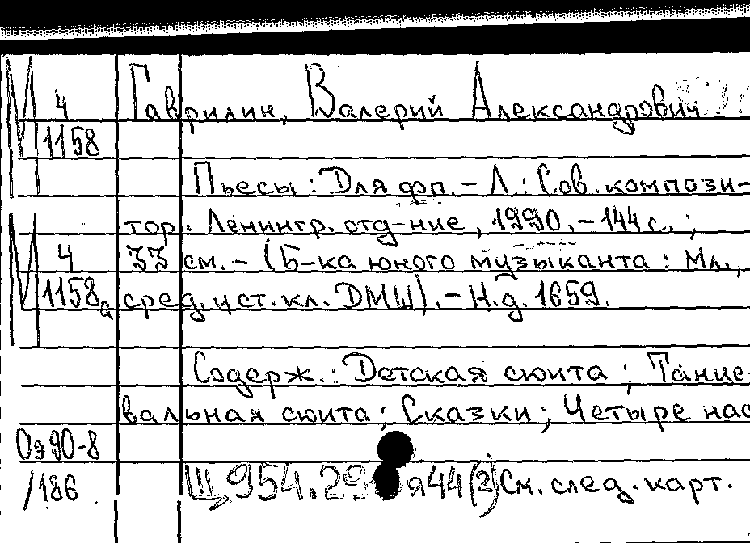 М 4 Гаврилин, Валерий Александрович
1158
Пьесы : Для фп. – Л. : Сов. компози-
тор. Ленингр. отд-ние, 1990. – 144 с. ;
М 4 33 см. – (Б-ка юного музыканта : Мл.,
1158а сред. и ст. кл. ДМШ). – Н.д. 1659.
Содерж.: Детская сюита ; Танце-
вальная сюита ; Сказки ; Четыре нас
Оэ90-8
/186 Щ954.29 я44(2) См. след. карт.